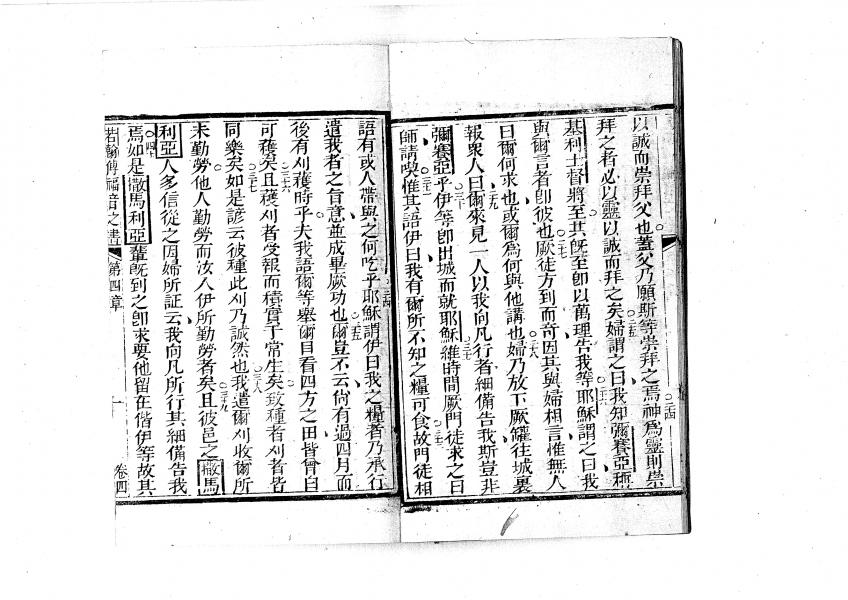 以誠而崇拜父也蓋父乃願斯等崇拜之焉二四神爲靈則崇
拜之者必以靈以誠而拜之矣二五婦謂之曰我知彌賽亞稱
基利士督將至其既至卽以萬理告我等二六耶穌謂之曰我
與爾言者卽彼也二七厥徒方到而奇因其與婦相言惟無人
曰爾何求也或爾爲何與他講也二八婦乃放下厥罐往城裏
報衆人曰二九爾來見一人以我向凡行者細備告我斯豈非
彌賽亞乎三十伊等卽出城而就耶穌三一維時間厥門徒求之曰
師請喫三二惟其語伊曰我有爾所不知之糧可食三三故門徒相
語有或人帶與之何吃乎三四耶穌謂伊曰我之糧者乃承行
遣我者之旨意並成畢厥功也三五爾豈不云尙有過四月而
後有刈穫時乎夫我語爾等舉爾目看四方之田皆曾白
可穫矣三六且穫刈者受報而積實于常生矣致種者刈者皆
同樂矣三七如是諺云彼種此刈乃誠然也三八我遣爾刈收爾所
未勤勞他人勤勞而汝入伊所勤勞者矣三九且彼邑之撒馬
利亞人多信從之因婦所証云我向凡所行其細備告我
焉四十如是撒馬利亞輩既到之卽求要他留在偕伊等故其
若翰傳福音之書 第四章 卷四